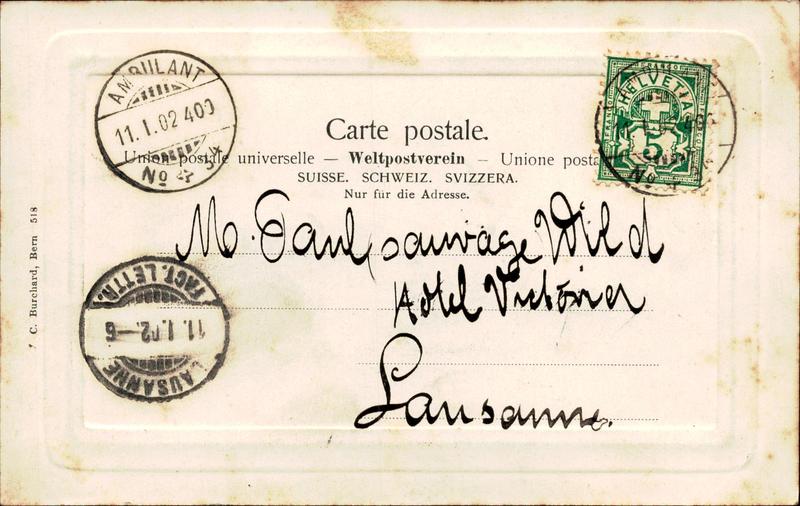 AMBULANT
11.I.02 400
No 4 34
FRANCO
HELVETIA
5
No 4
Carte postale.
Union postale universelle — Weltpostverein — Unione posta
SUISSE. SCHWEIZ. SVIZZERA.
Nur für die Adresse.
M. Paul sauvage Wild
Hotel Victoria
Lausanne.
FACT. LETTR.
11.I.02.-6
LAUSANNE
C. Burchard, Bern 518